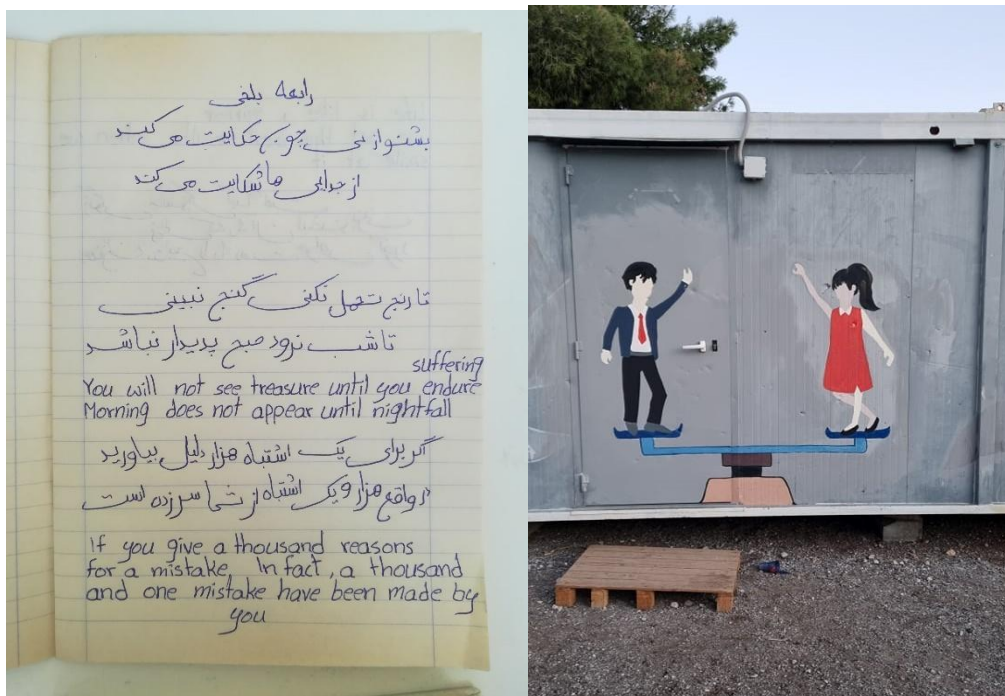 رابعه بلخی
بشنو از نی چون حکایت می کند
از جدایی ها شکایت می کند
تا رنج تحمل نکنی گنج نبینی
تا شب نرود صبح پدیدار نباشد
suffering
You will not see treasure until you endure
Morning does not appear until nightfall
اگر برای یک اشتباه هزار دلیل بیاورید
در واقع هزار و یک اشتباه از شما سر زده است
If you give a thousand reasons
for a mistake, In fact, a thousand
and one mistake have been made by
you